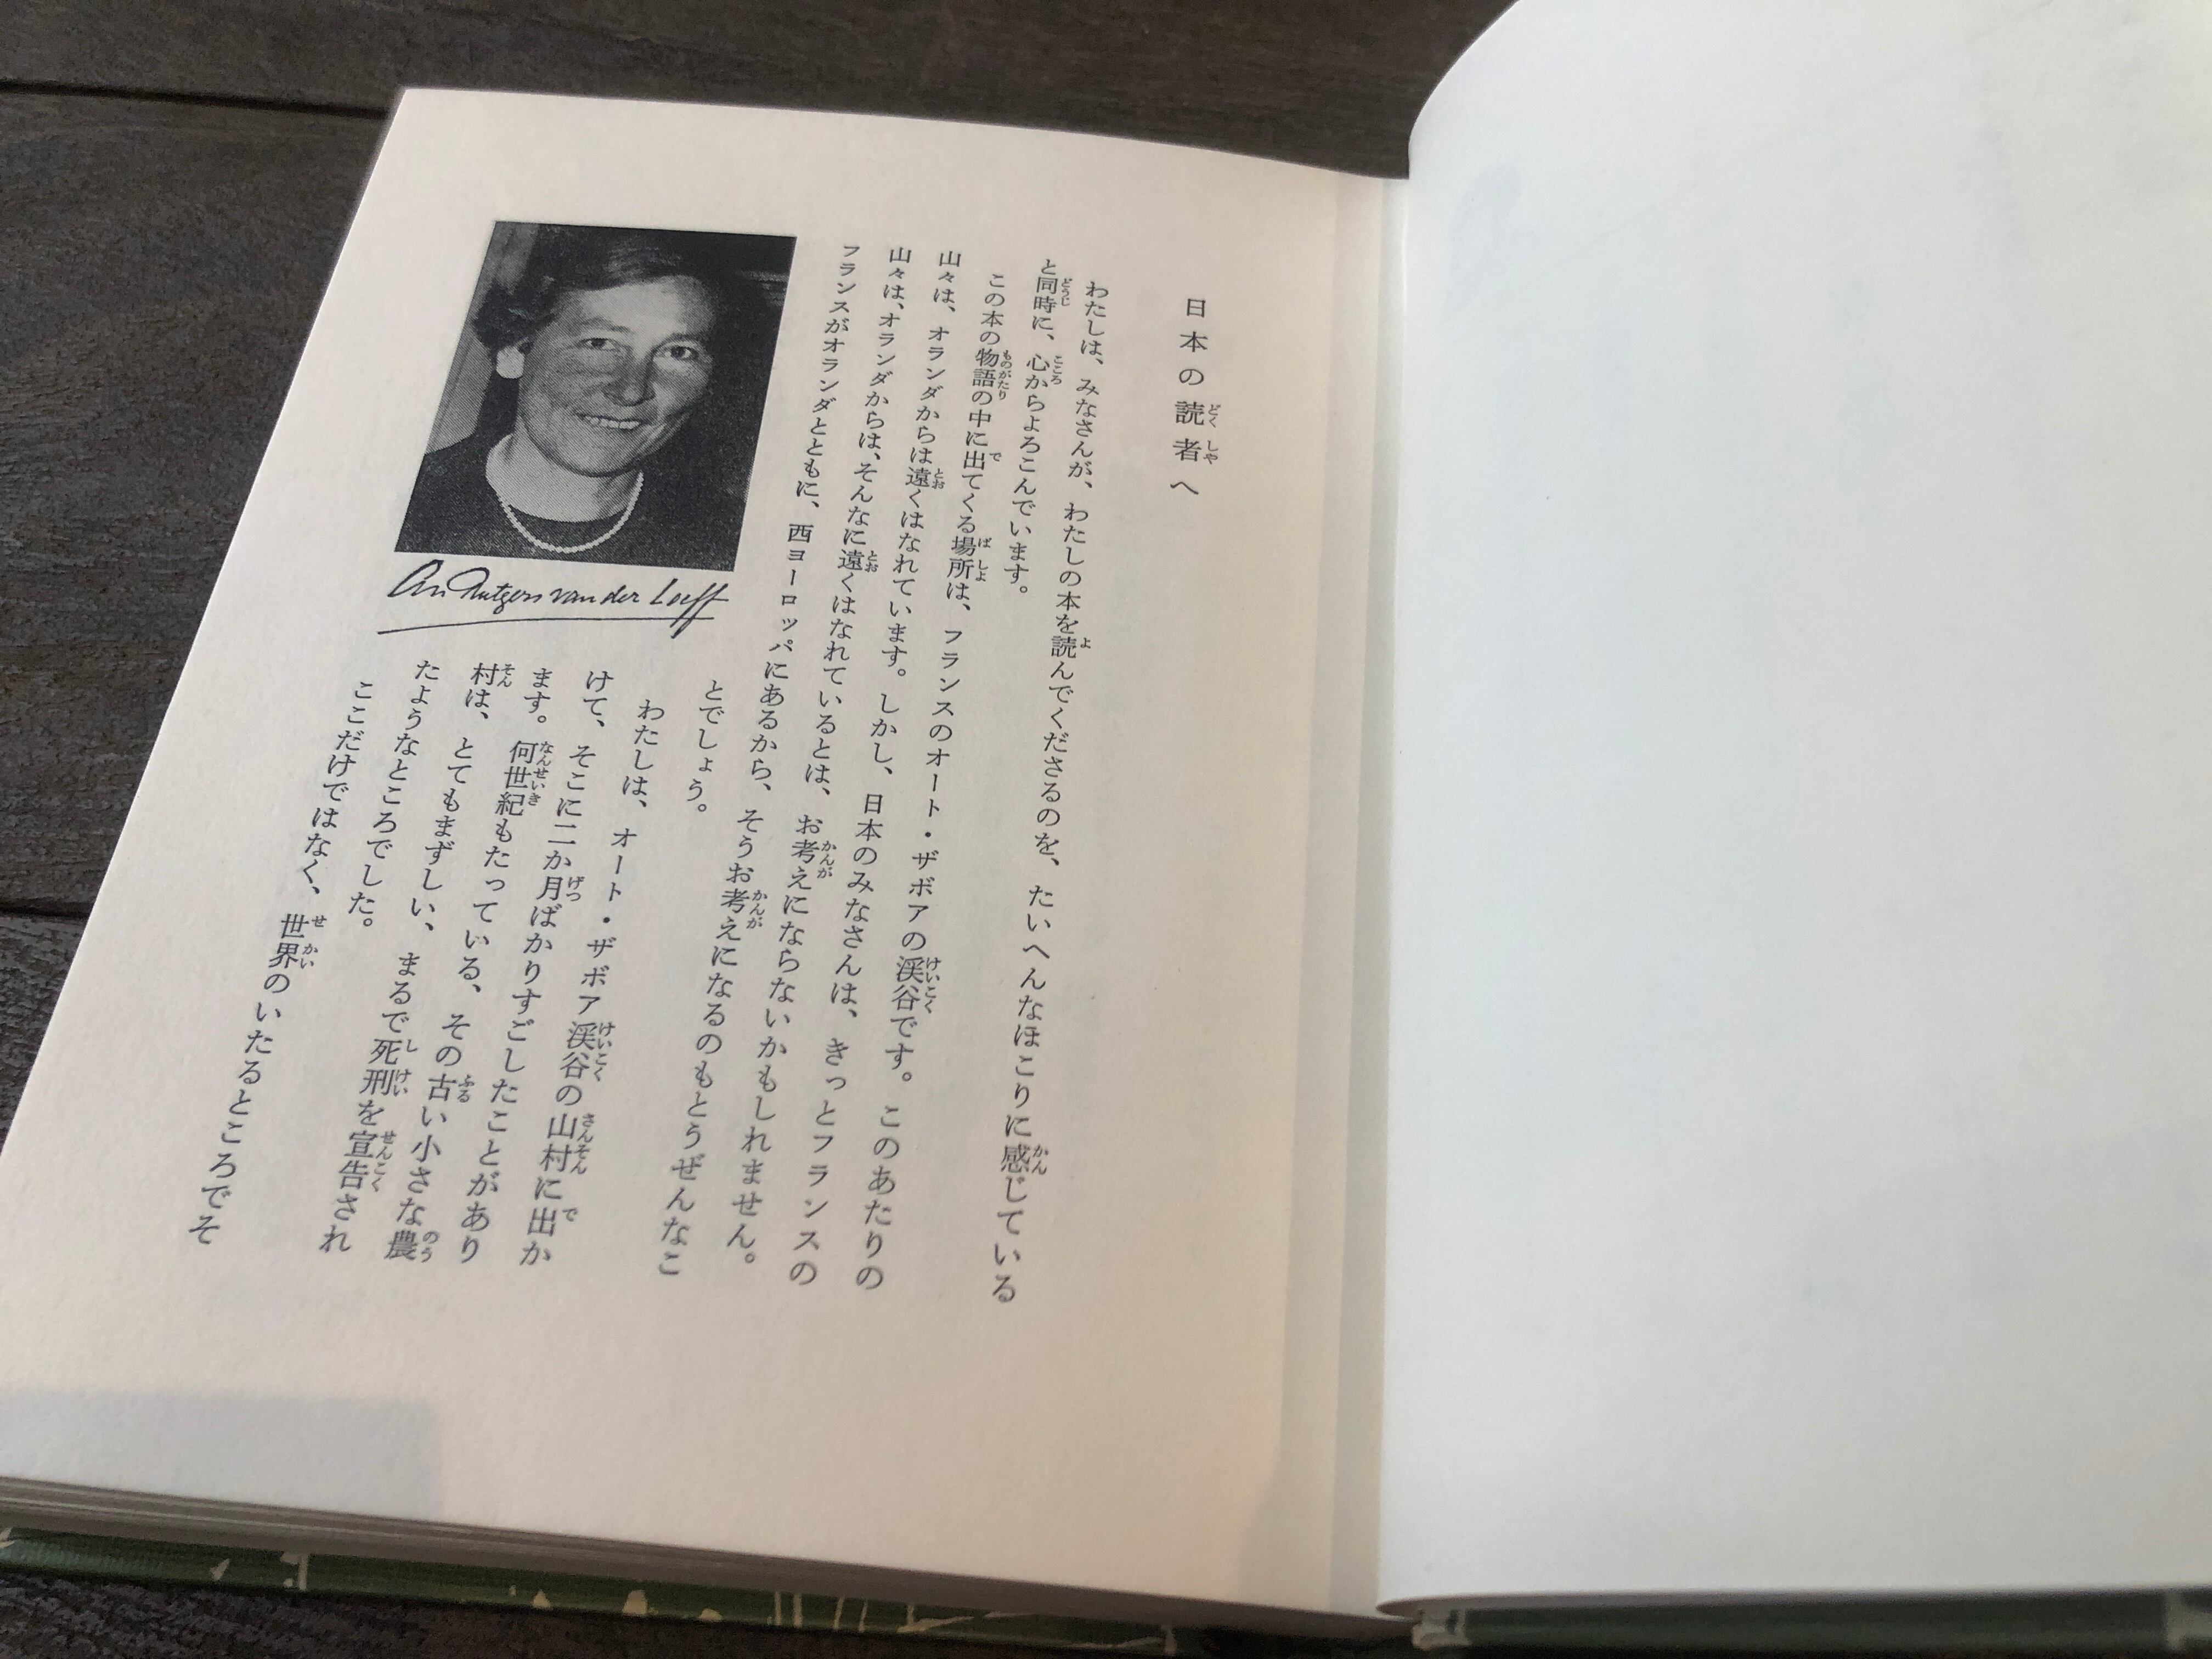 日本の読者へ
わたしは、みなさんが、わたしの本を読んでくださるのを、たいへんなほこりに感じている
と同時に、心からよろこんでいます。
この本の物語の中に出てくる場所は、フランスのオート・ザボアの渓谷です。このあたりの
山々は、オランダからは遠くはなれています。しかし、日本のみなさんは、きっとフランスの
山々は、オランダからは、そんなに遠くはなれているとは、お考えにならないかもしれません。
フランスがオランダとともに、西ヨーロッパにあるから、そうお考えになるのもとうぜんなこ
とでしょう。
わたしは、オート・ザボア渓谷の山村に出か
けて、そこに二か月ばかりすごしたことがあり
ます。何世紀もたっている、その古い小さな農
村は、とてもまずしい、まるで死刑を宣告され
たようなところでした。
ここだけではなく、世界のいたるところでそ
An Rutgers van der Loeff